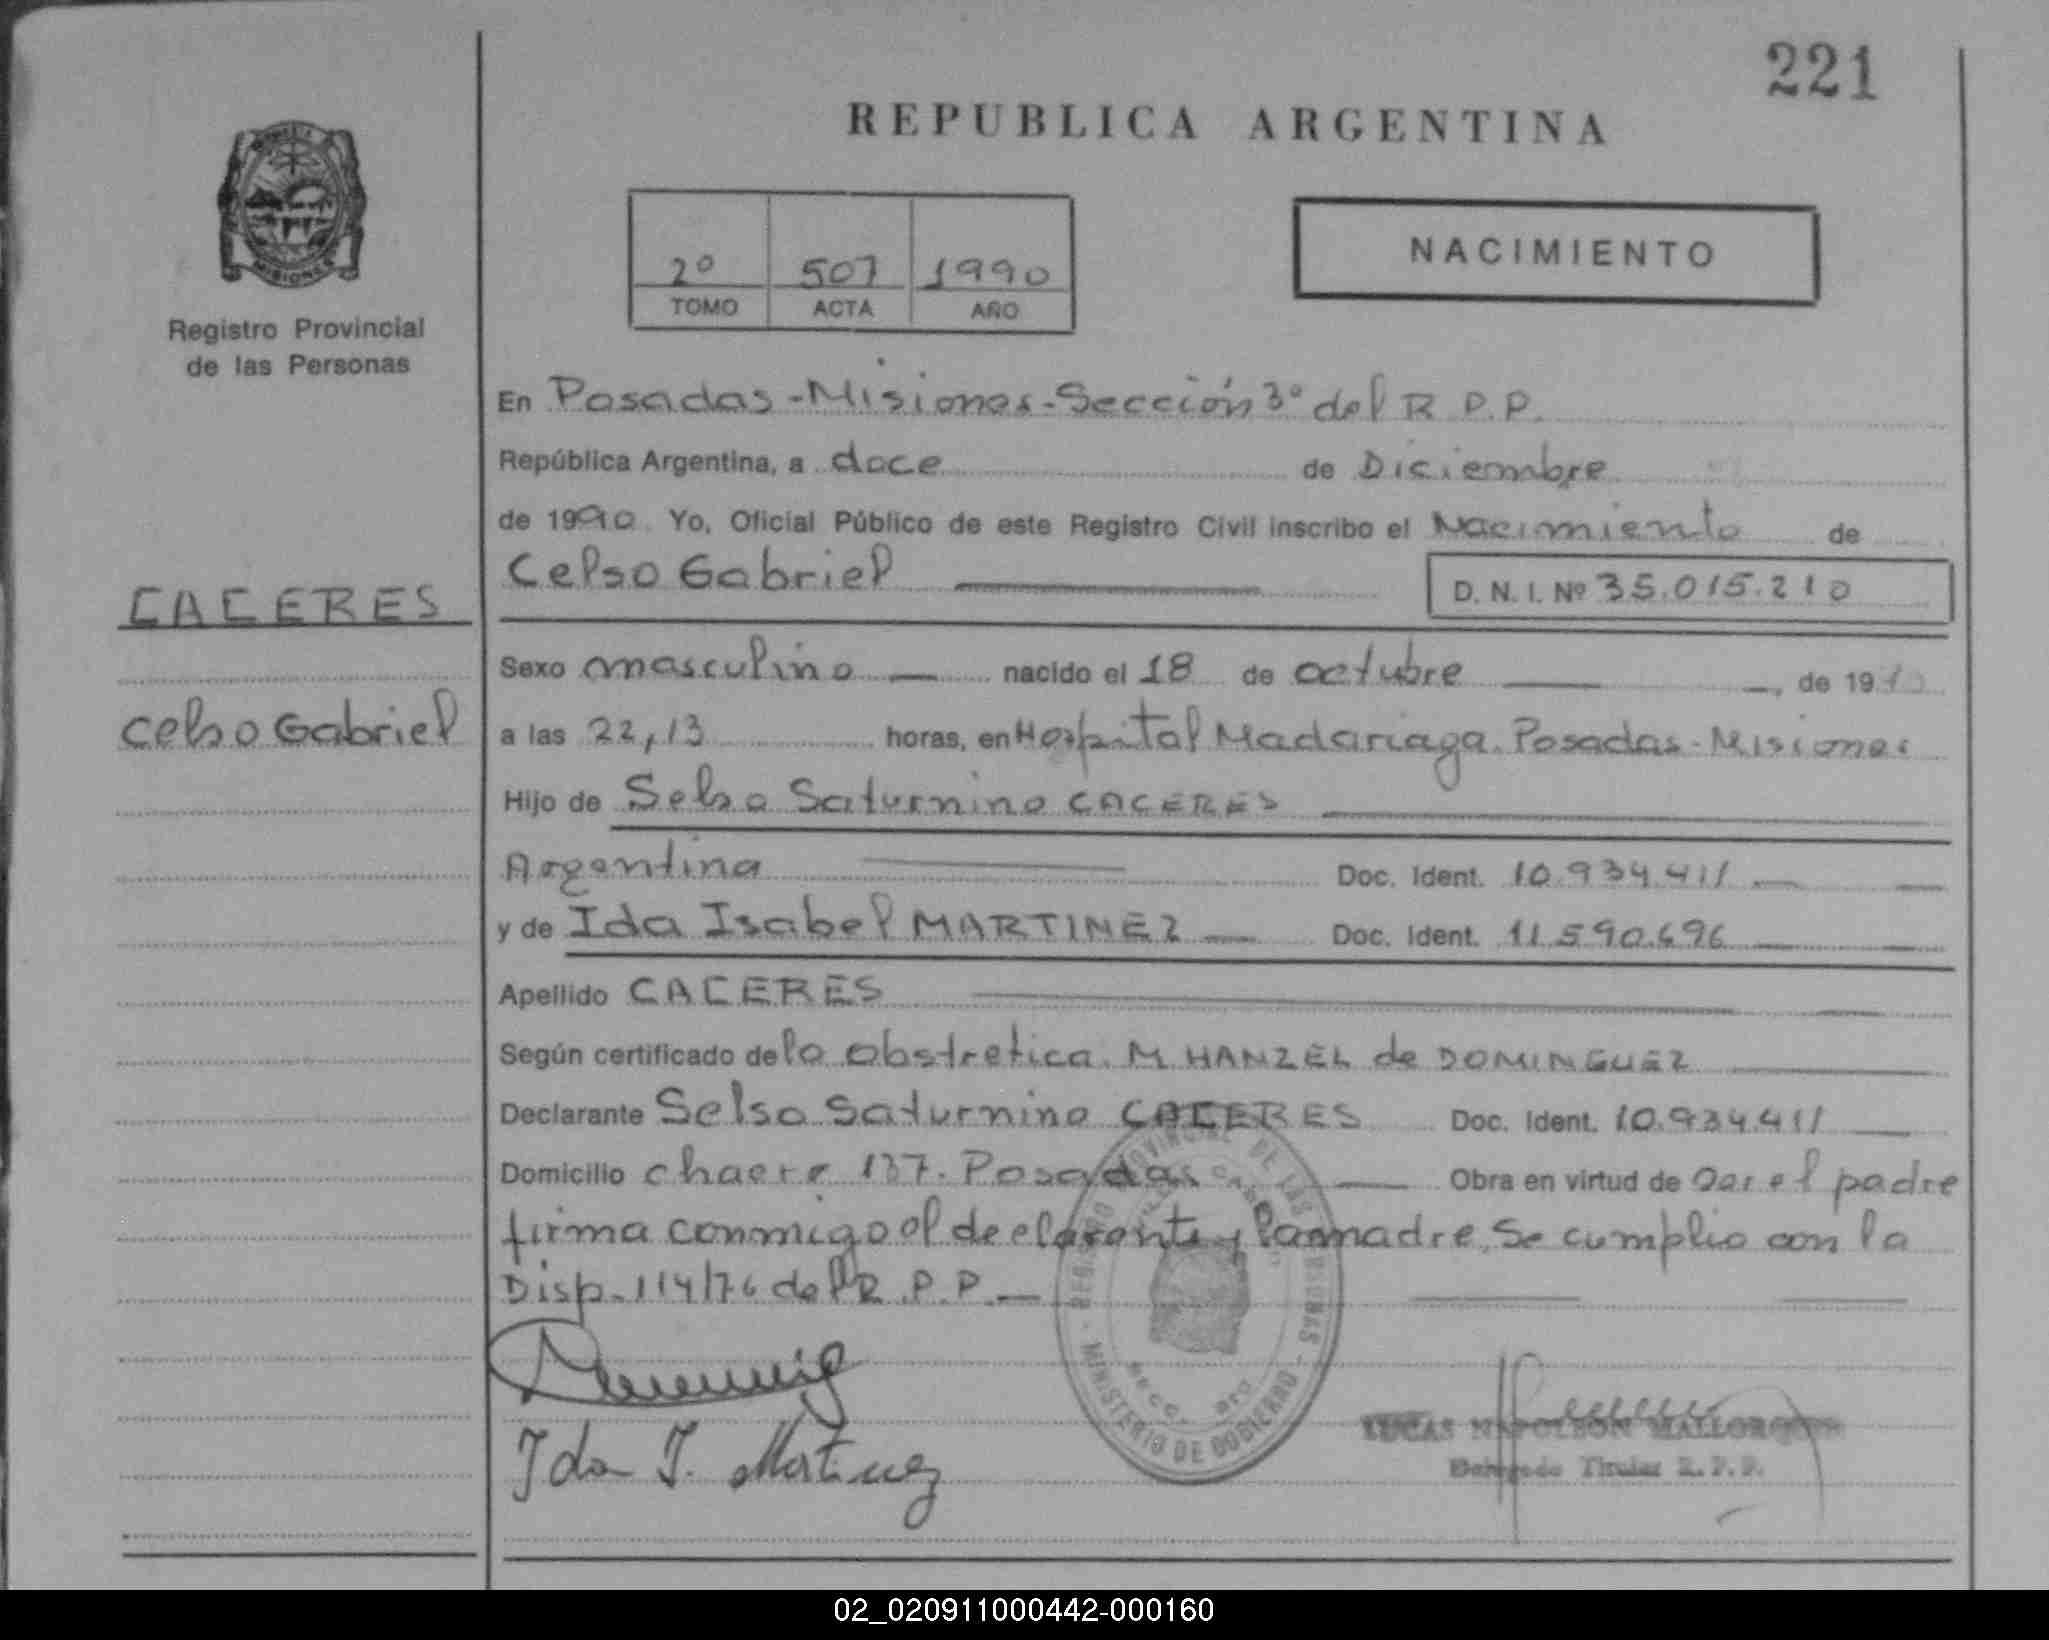 221
REPUBLICA ARGENTINA
MISIONES
Registro Provincial
de las Personas
2º 507 1990
TOMO ACTA AÑO
NACIMIENTO
En Posadas - Misiones - Sección 3º del R.P.P.
República Argentina, a doce de Diciembre
de 1990 Yo, Oficial Público de este Registro Civil inscribo el Nacimiento de
Celso Gabriel D. N. I. Nº 35.015.210
CACERES
Celso Gabriel
Sexo masculino nacido el 18 de octubre, de 19
a las 22,13 horas, en Hospital Madariaga. Posadas - Misiones
Hijo de Selso Saturnino CACERES
Argentina Doc. Ident. 10.934.411
y de Ida Isabel MARTINEZ Doc. Ident. 11.590.696
Apellido CACERES
Según certificado de la obstretica. M. HANZEL de DOMINGUEZ
Declarante Selso Saturnino CACERES Doc. Ident. 10.934.411
Domicilio 137. Posadas Obra en virtud de ser el padre
firma conmigo el declarante y la madre. Se cumplio con la
Disp. 114/76 del R.P.P.
REGISTRO PROVINCIAL DE LAS PERSONAS
MINISTERIO DE GOBIERNO
Ida I. Martinez
LUCAS NAPOLEON
Delegado Titular R.P.P.
02_020911000442-000160